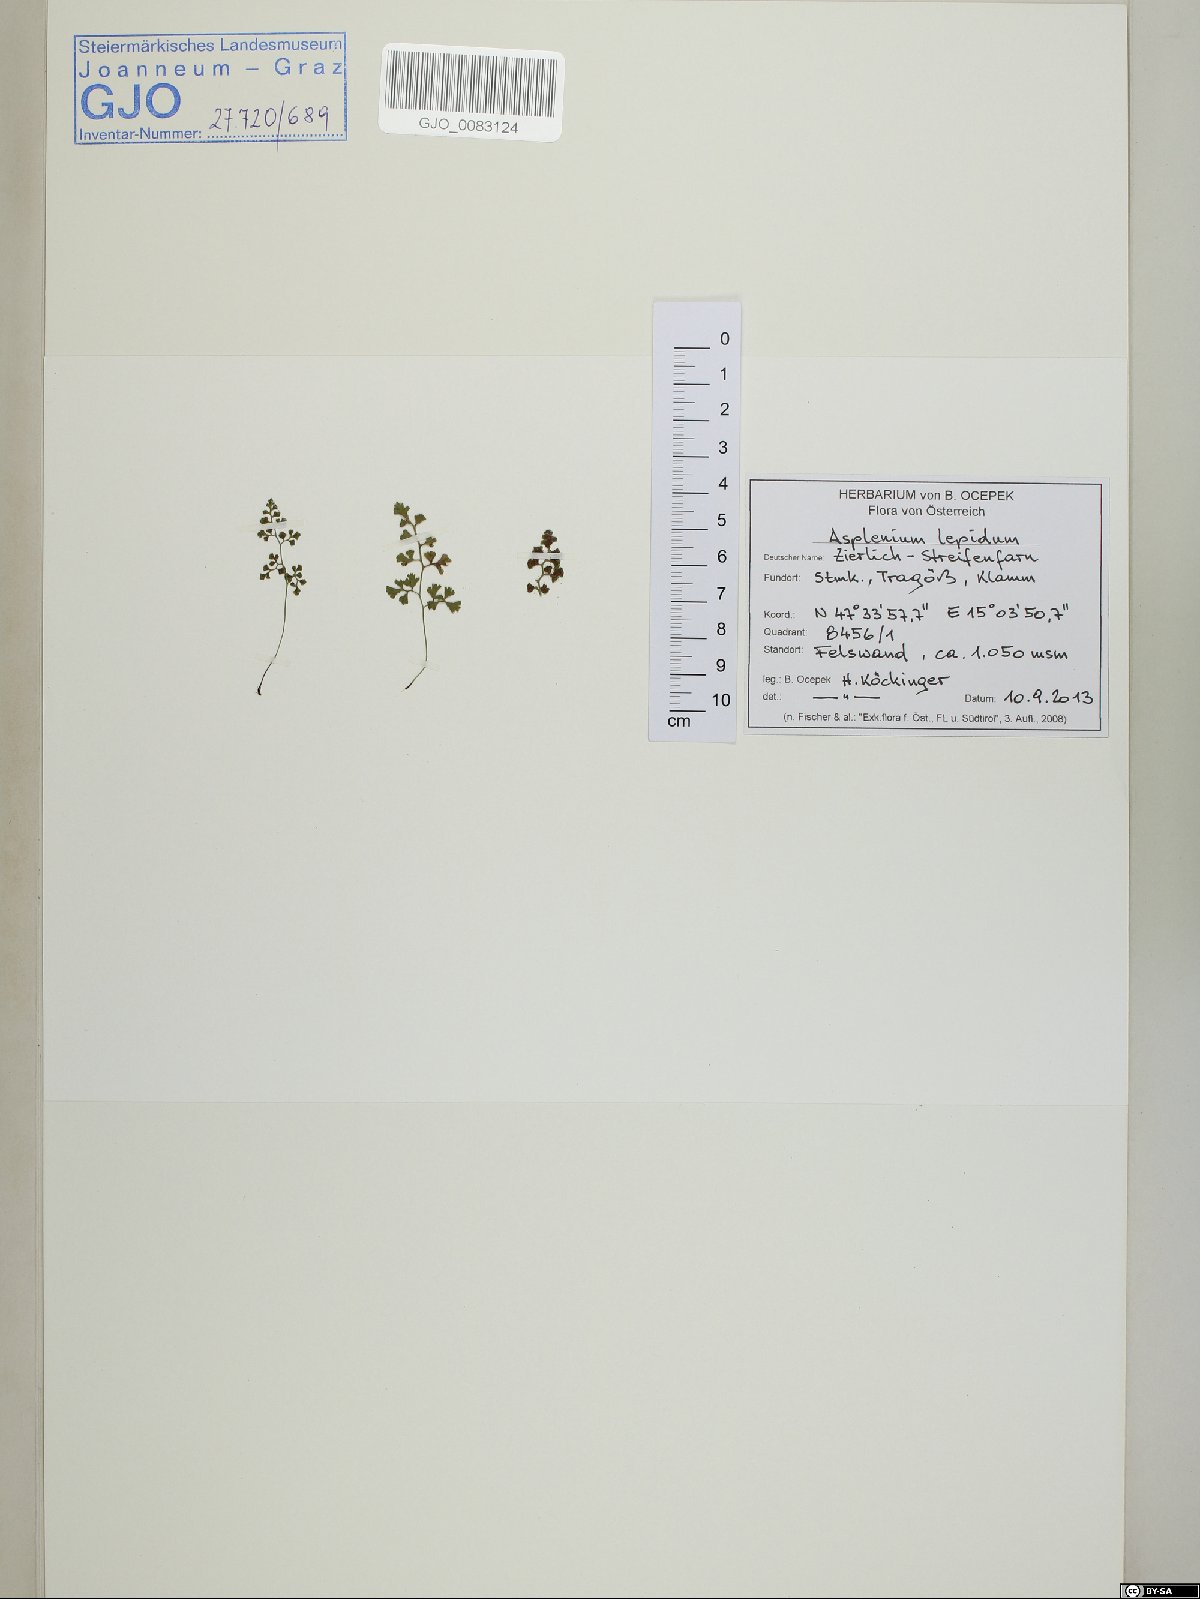 Steiermärkisches Landesmuseum
Joanneum – Graz
GJO
Inventar-Nummer: 27720/689
GJO_0083124
0
1
2
3
4
5
6
7
8
9
10
cm
HERBARIUM von B. OCEPEK
Flora von Österreich
Asplenium lepidum
Deutscher Name: Zierlich-Streifenfarn
Fundort: Stmk., Tragöß, Klamm
Koord.: N 47°33'57,7" E 15°03'50,7"
Quadrant: 8456/1
Standort: Felswand, ca. 1.050 msm
leg.: B. Ocepek H. Köckinger
det.: — " — Datum: 10.9.2013
(n. Fischer & al.: "Exk.flora f. Öst., FL u. Südtirol", 3. Aufl., 2008)
cc BY-SA